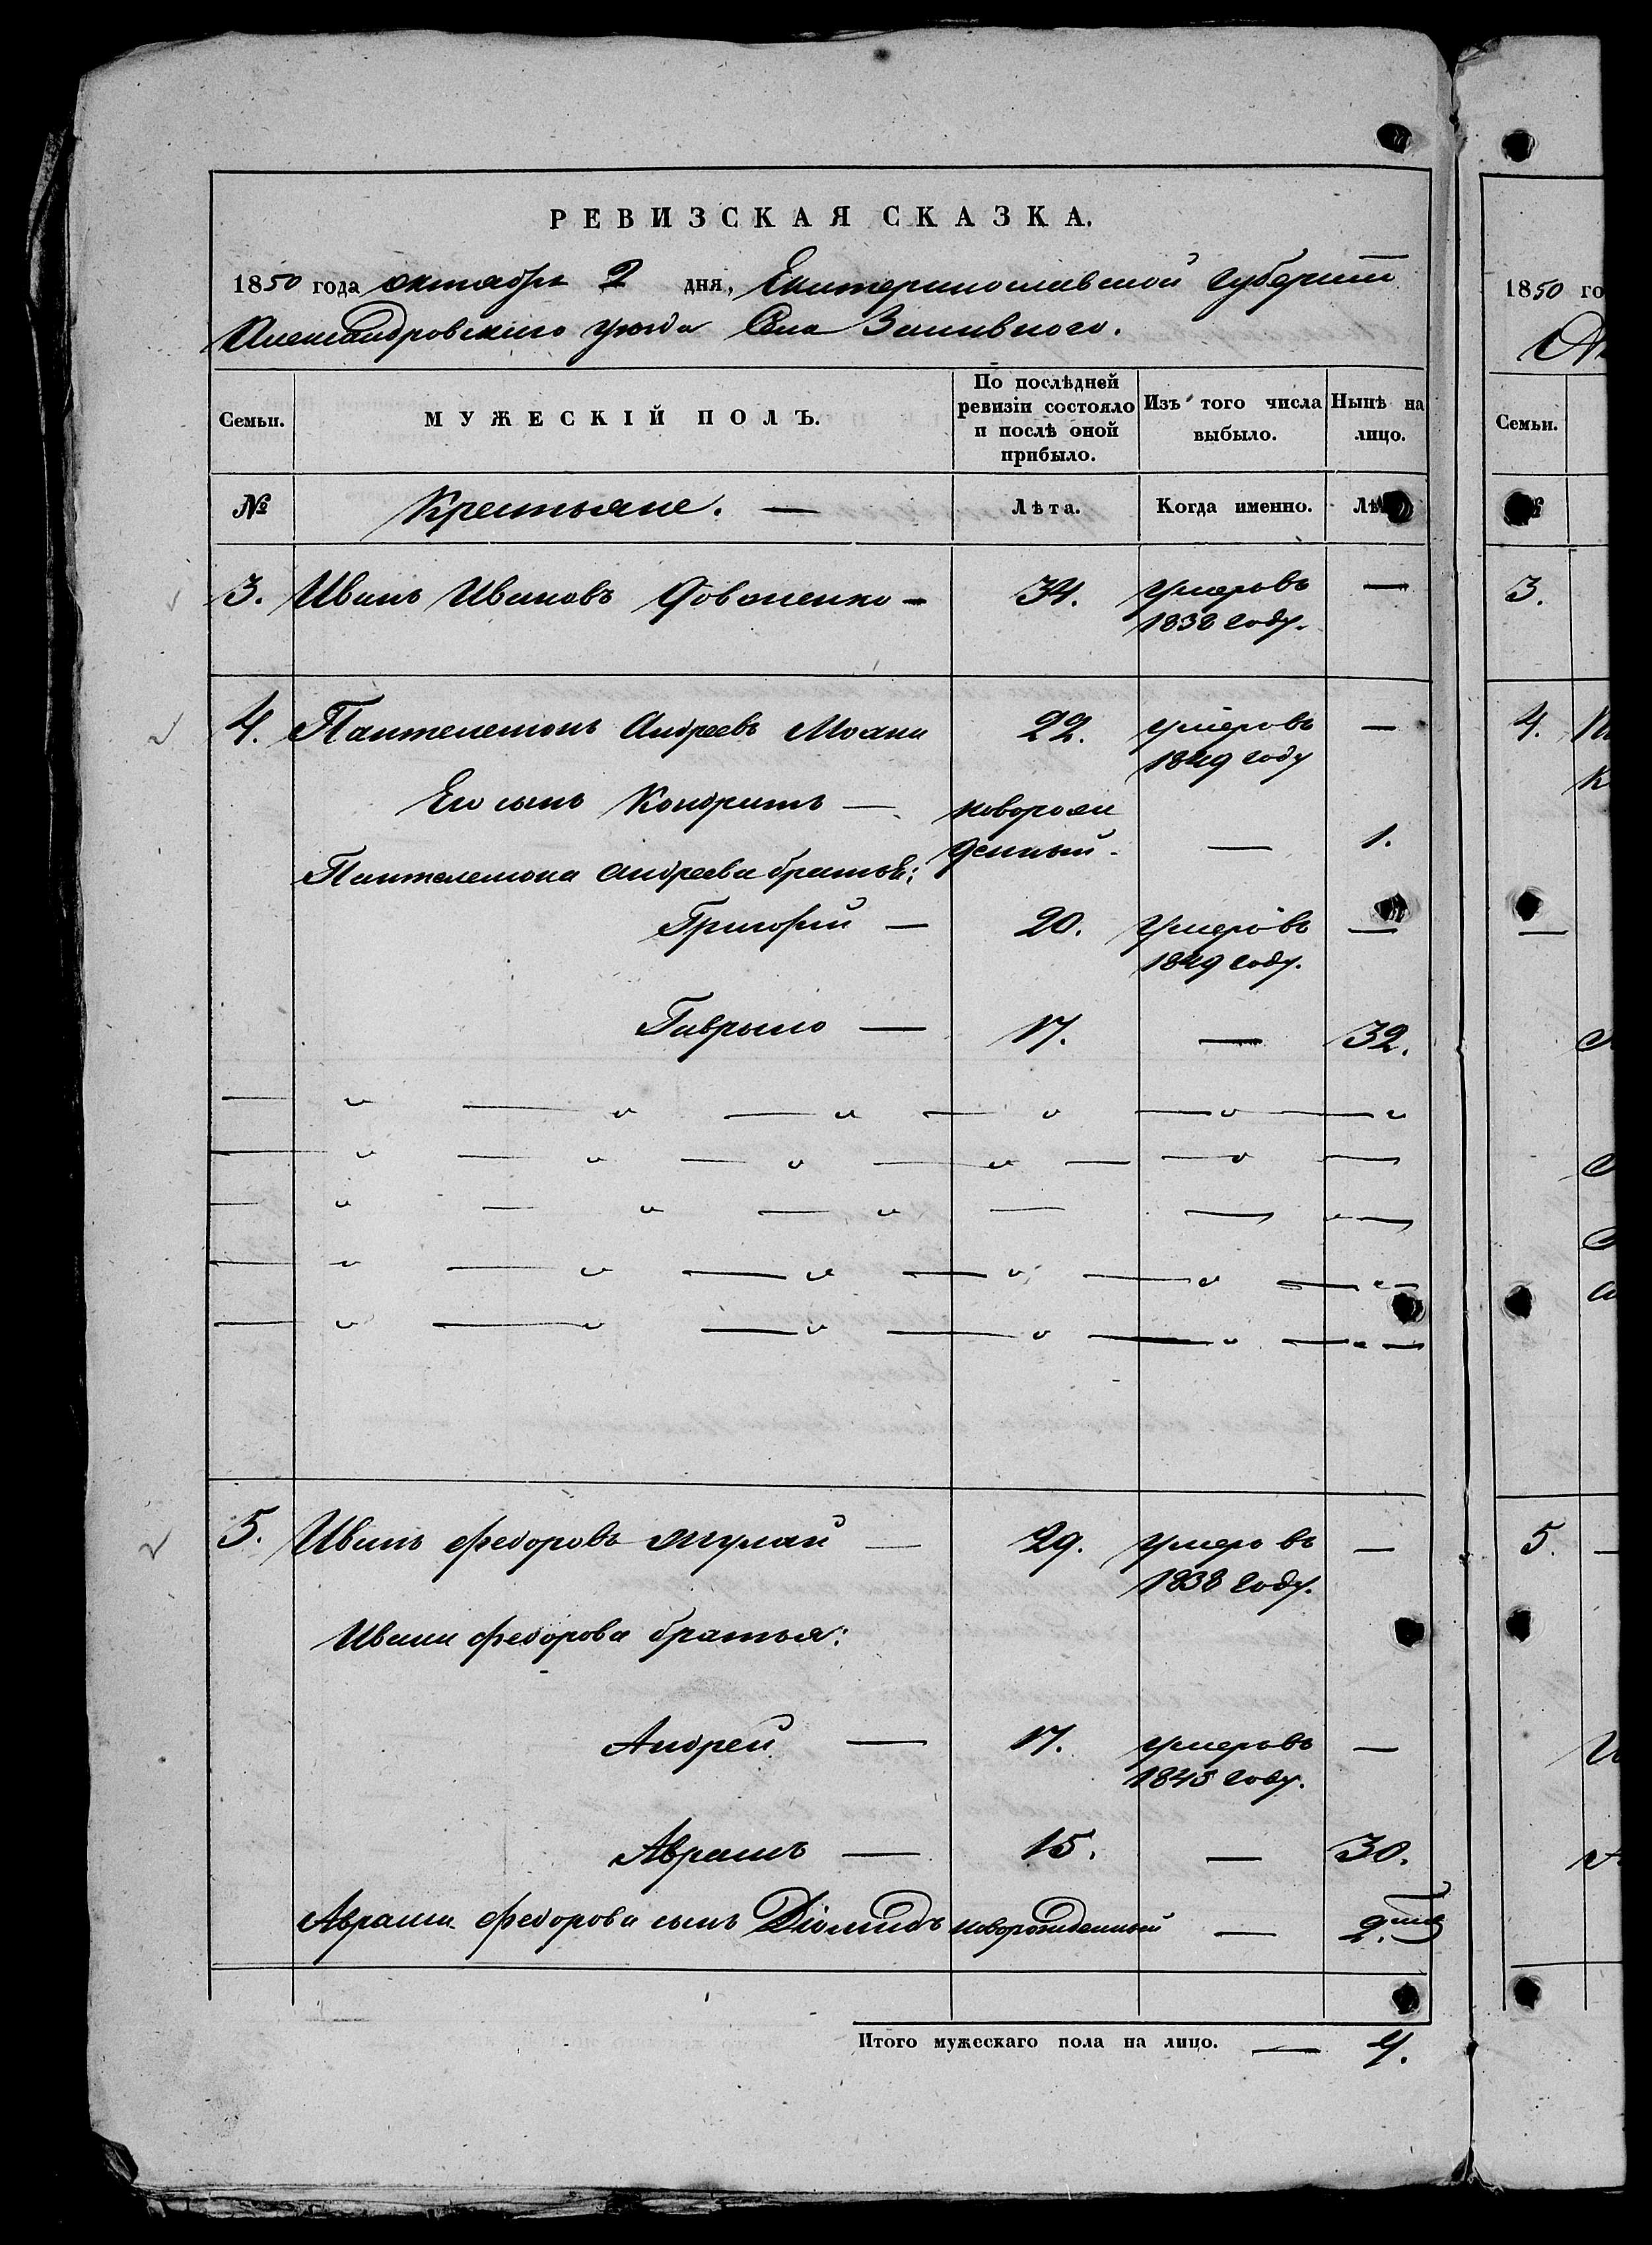 РЕВИЗСКАЯ СКАЗКА.
1850 года октября 2 дня, Екатеринославской губернiи
Александровскаго уѣзда Села Заливнаго.
Семьи.
МУЖЕСКІЙ ПОЛЪ.
По послѣдней ревизіи состояло и послѣ оной прибыло.
Изъ того числа выбыло.
Нынѣ на лицо.
№
Крестьяне. —
Лѣта.
Когда именно.
Лѣ
3. Иванъ Ивановъ Довоненко — 34. умеръ въ —
1838 году.
4. Пантелемонъ Андреевъ 22. умеръ въ —
1849 году
Его сынъ Кондратъ — новорож
денный. — 1.
Пантелемона Андреева братья:
Григорій — 20. умеръ въ —
1849 году.
Гаврыло — 17. — 32.
5. Иванъ Федоровъ — 29. умеръ въ —
1838 году.
Ивана Федорова братья:
Андрей — 17. умеръ въ —
1845 году.
Аврамъ — 15. — 30.
Аврама Федорова сынъ Діомидъ новорожденный — 2.
Итого мужескаго пола на лицо. — 4.
1850 го
Семьи.
3.
4.
5. —